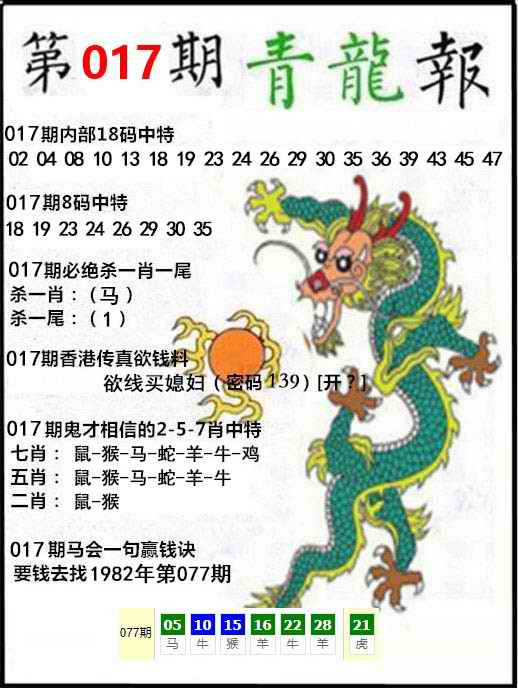 第017期青龍報
017期内部18码中特
02 04 08 10 13 18 19 23 24 26 29 30 35 36 39 43 45 47
017期8码中特
18 19 23 24 26 29 30 35
017期必绝杀一肖一尾
杀一肖：（马）
杀一尾：（1）
017期香港传真欲钱料
欲线买媳妇（密码139）[开？]
017期鬼才相信的2-5-7肖中特
七肖： 鼠-猴-马-蛇-羊-牛-鸡
五肖： 鼠-猴-马-蛇-羊-牛
二肖： 鼠-猴
017期马会一句赢钱诀
要钱去找1982年第077期
077期 05 10 15 16 22 28 21
马 牛 猴 羊 牛 羊 虎